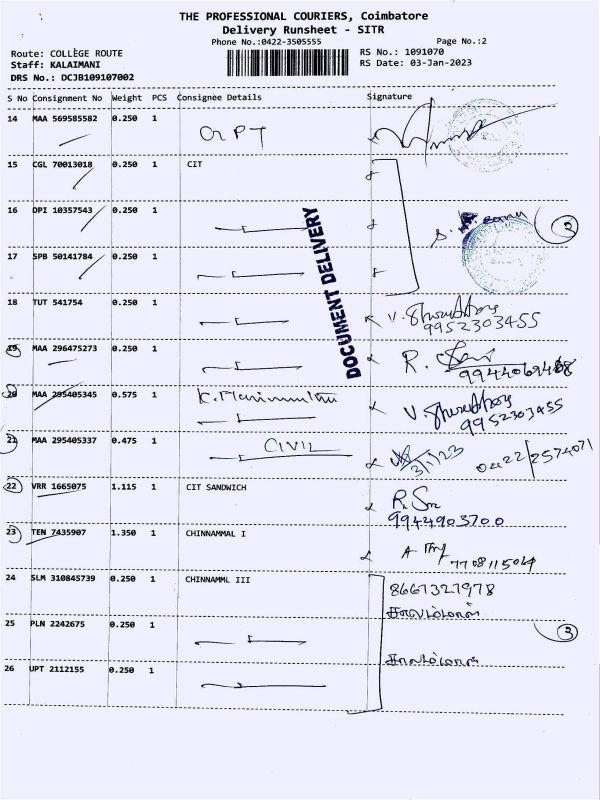 THE PROFESSIONAL COURIERS, Coimbatore
Delivery Runsheet - SITR
Phone No.:0422-3505555 Page No.:2
Route: COLLEGE ROUTE RS No.: 1091070
Staff: KALAIMANI RS Date: 03-Jan-2023
DRS No.: DCJB109107002
S No Consignment No Weight PCS Consignee Details Signature
14 MAA 569585582 0.250 1
15 CGL 70013018 0.250 1 CIT
16 DPI 10357543 0.250 1
2
17 SPB 50141784 0.250 1
DOCUMENT DELIVERY
18 TUT 541754 0.250 1
9952303455
19 MAA 296475273 0.250 1
R.
20 MAA 295405345 0.575 1
9952303455
21 MAA 295405337 0.475 1 CIVIL
3/1/23 0422/2574071
22 VRR 1665075 1.115 1 CIT SANDWICH
9944903700
23 TEN 7435907 1.350 1 CHINNAMMAL I
24 SLM 310845739 0.250 1 CHINNAMML III
8667327978
25 PLN 2242675 0.250 1
3
26 UPT 2112155 0.250 1